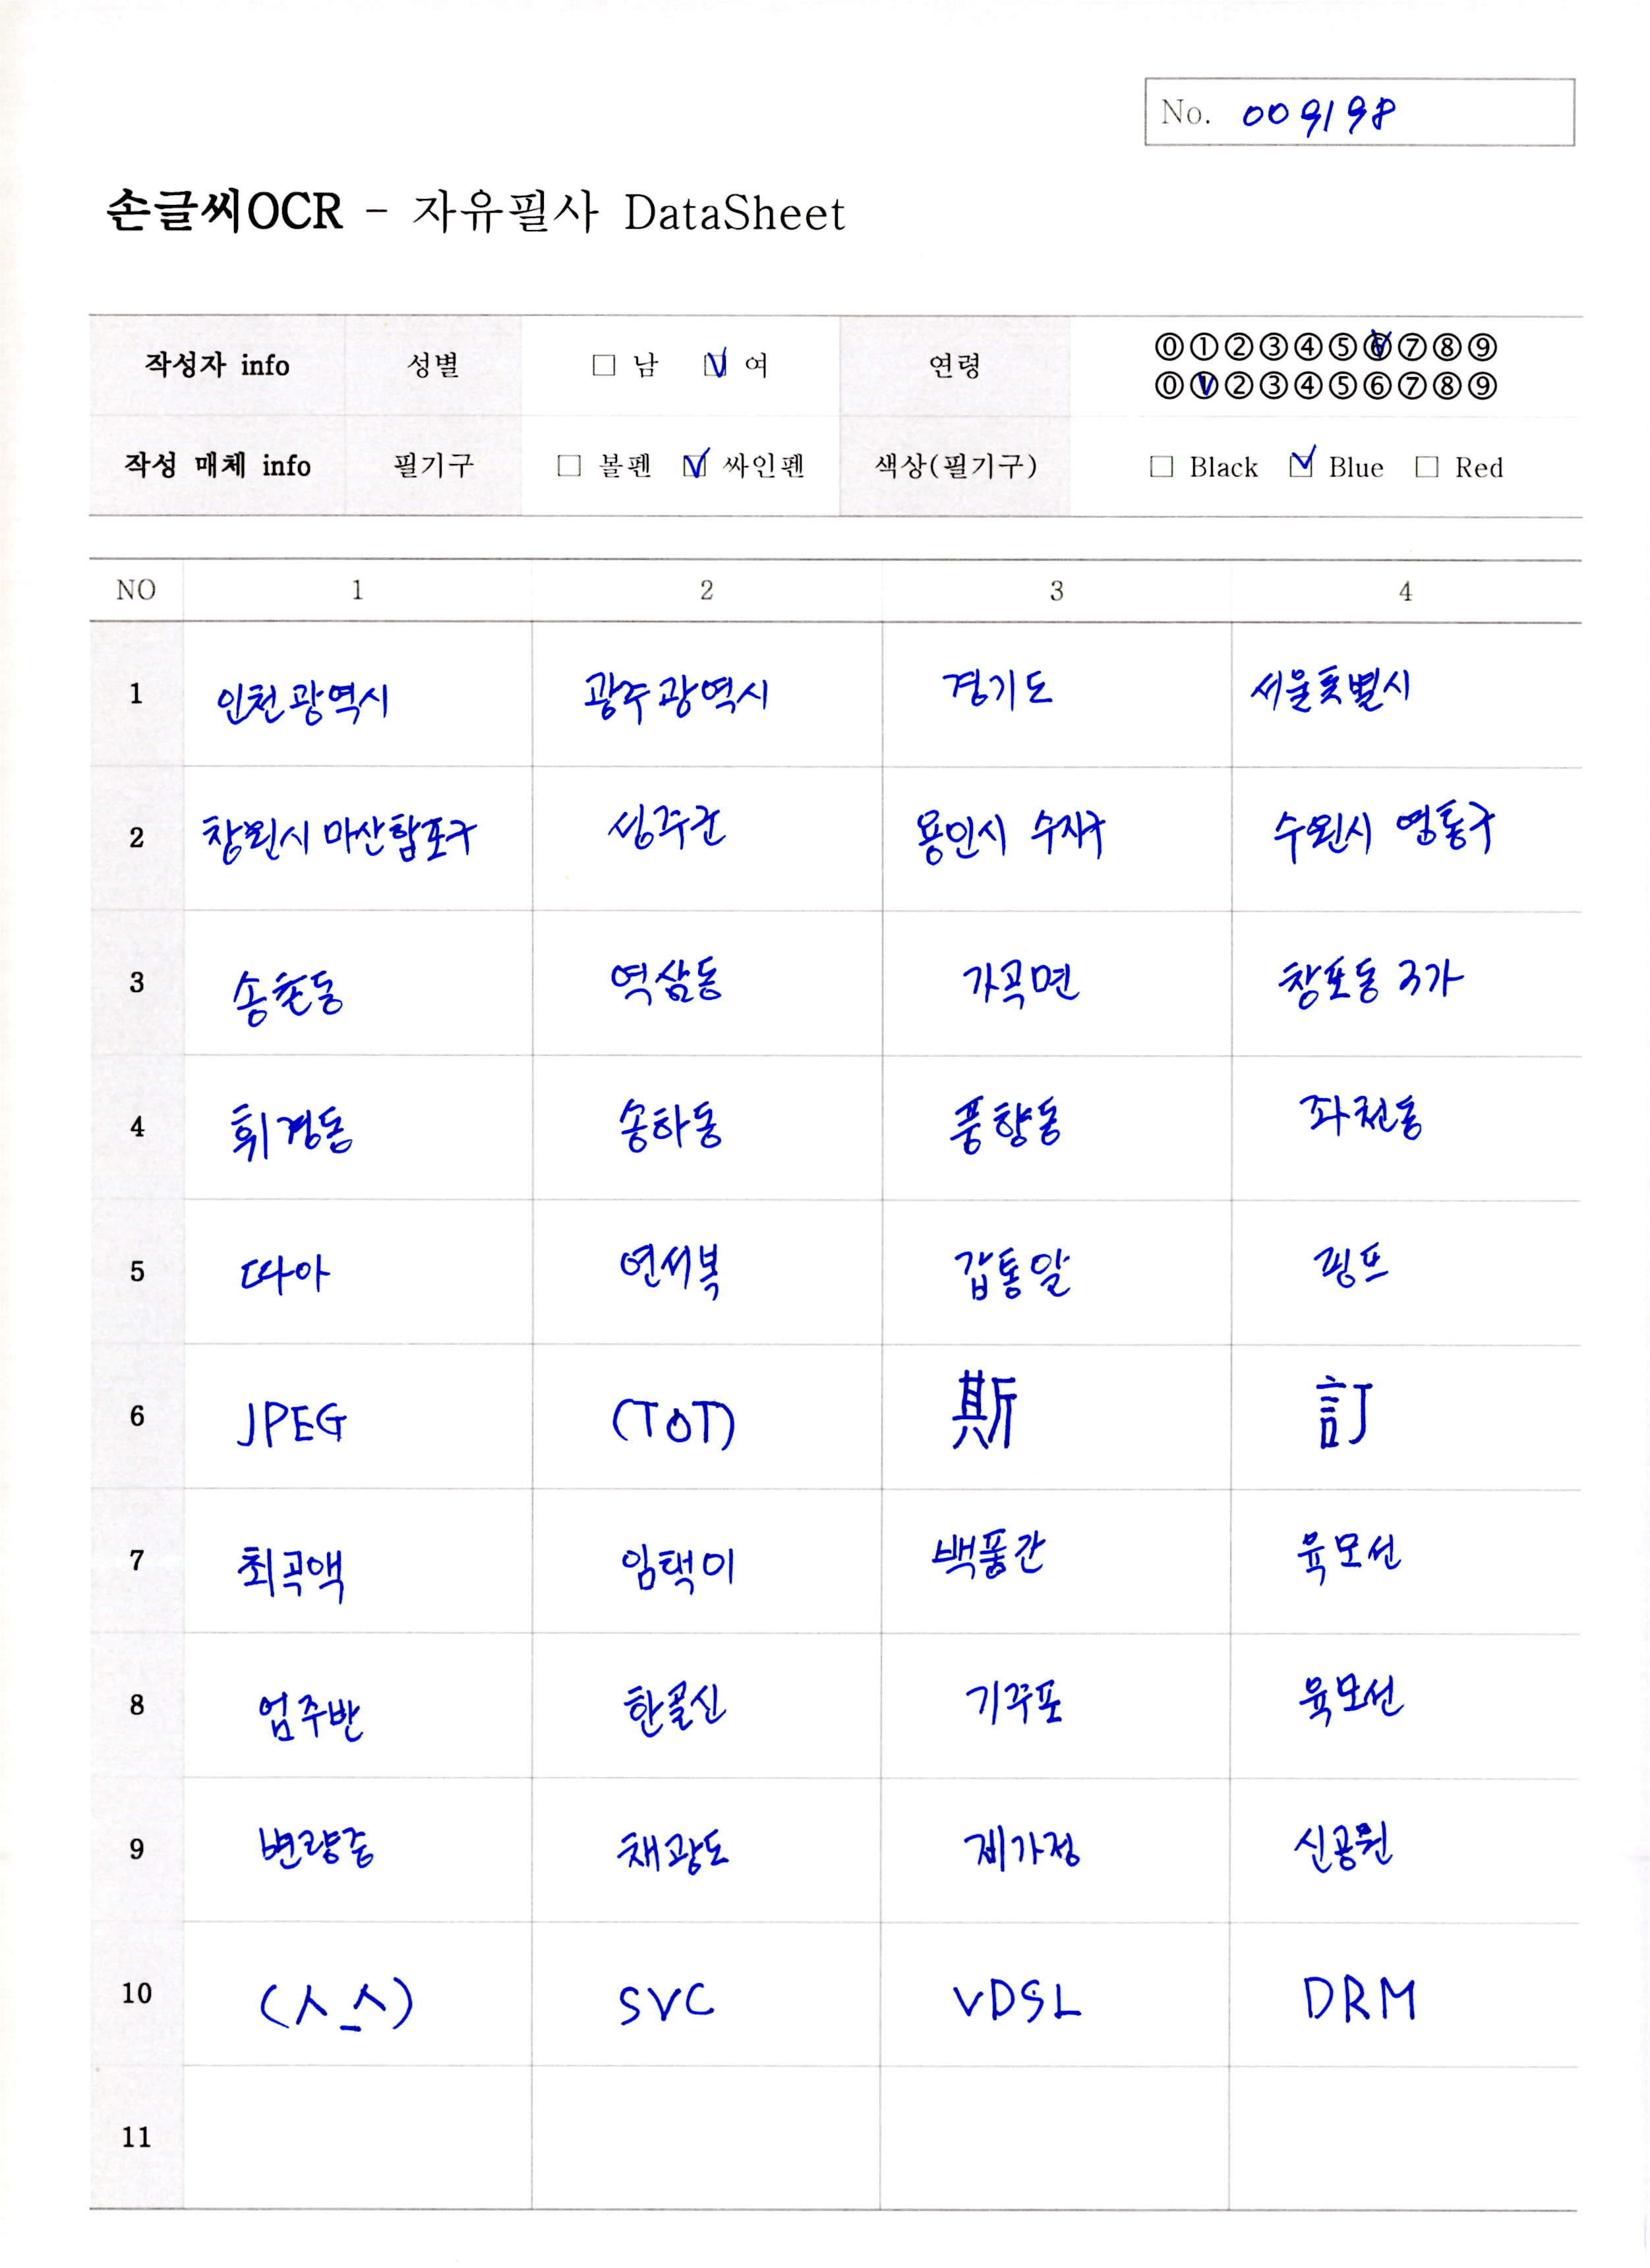 No. 009198
손글씨OCR - 자유필사 DataSheet
작성자 info 성별 □ 남 ☑ 여 연령 ⓪①②③④⑤⑥⑦⑧⑨
⓪①②③④⑤⑥⑦⑧⑨
작성 매체 info 필기구 □ 볼펜 ☑ 싸인펜 색상(필기구) □ Black ☑ Blue □ Red
NO 1 2 3 4
1 인천광역시 광주광역시 경기도 서울특별시
2 창원시 마산합포구 성주군 용인시 수지구 수원시 영통구
3 송촌동 역삼동 가곡면 창포동 3가
4 휘경동 송하동 풍향동 좌천동
5 따아 연서복 갑통알 핑프
6 JPEG (ToT) 斯 訂
7 최곡액 임택이 백품간 육모선
8 엄주반 한골신 기꾸포 육모선
9 변량중 채광도 제가정 신공원
10 (ㅅ_ㅅ) SVC VDSL DRM
11